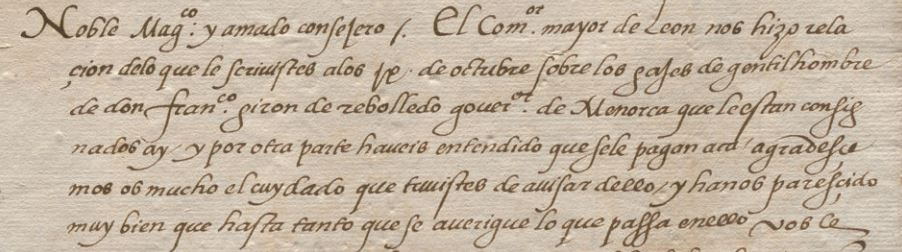 Noble Mag.co y amado consejero /. El Com.or mayor de Leon nos hizo rela
çion delo que le scriuistes alos ix. de octubre sobre los gajes de gentilhombre
de don fran.co giron de rebolledo gouer.or de Menorca que le estan consig
nados ay / y por otra parte haueis entendido que sele pagan aca / agradesçe
mos os mucho el cuydado que tuuistes de auisar dello / y hanos paresçido
muy bien que hasta tanto que se auerigue lo que passa enello vos le